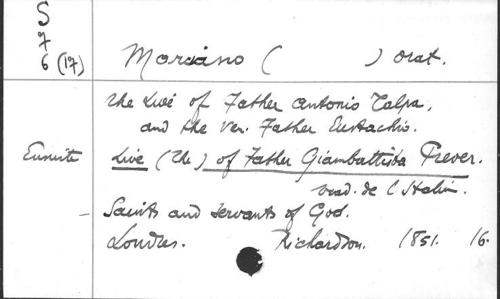 S
7
6 (17)
Marciano ( ) orat.
The Live of Father Antonio Talpa,
and the Ven. Father Eustachio.
Live (The) of Father Giambattista Prever.
trad. de l'Italien.
Saints and Servants of God.
Londres. Richardson. 1851. 16.